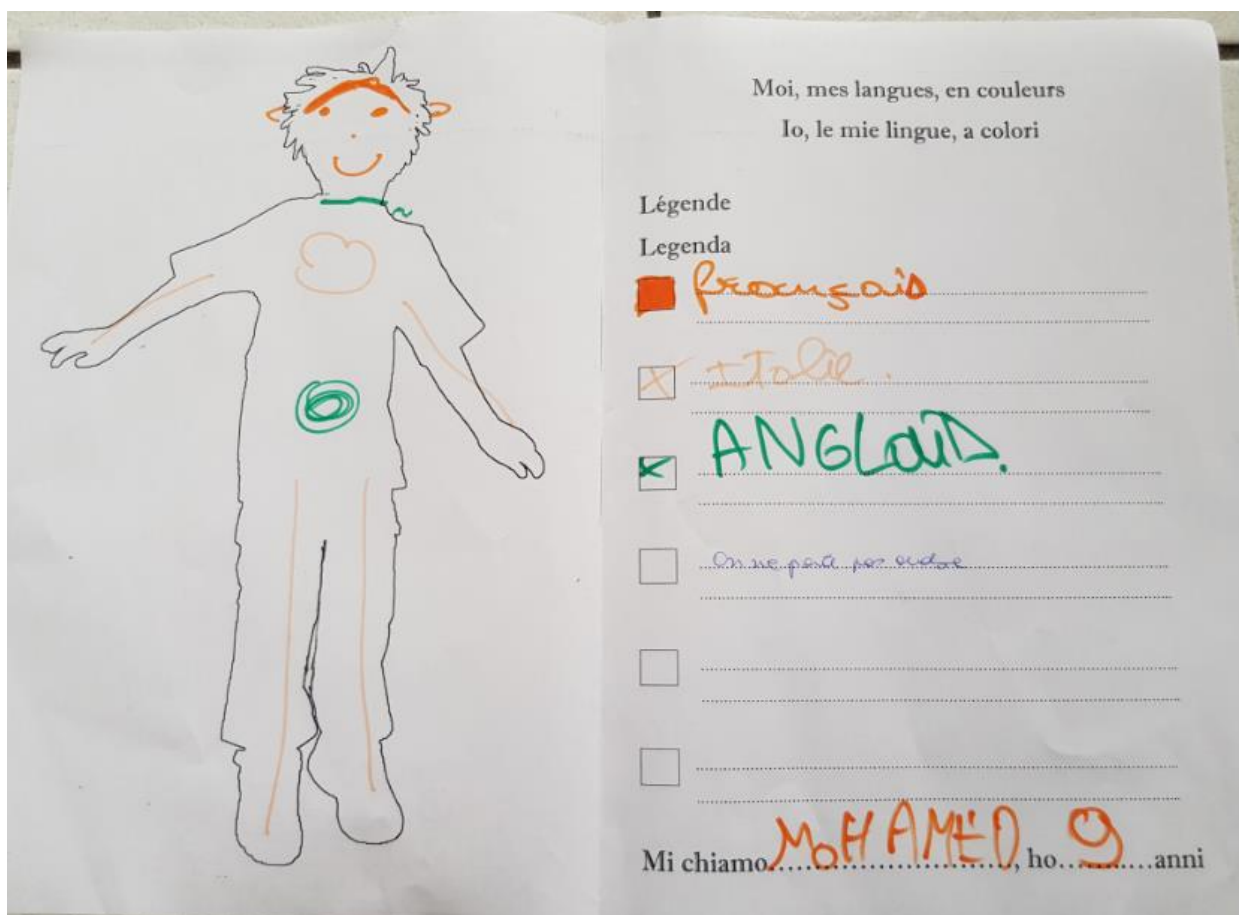 Moi, mes langues, en couleurs
Io, le mie lingue, a colori
Légende
Legenda
français
Italie.
ANGLaiS.
on ne parle pas
Mi chiamo MOHAMED, ho 9 anni